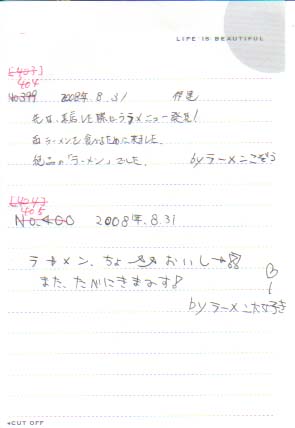 LIFE IS BEAUTIFUL
404
No399 2008年.8.31
先日、来店した際にラーメニュー発見!
ラーメンを食べるために来ました。
絶品の「ラーメン」でした。 byラーメンこぞう
405
No.400 2008年.8.31
ラーメン、ちょー おいしー
また、たべにきまーす
byラーメン大好き
CUT OFF